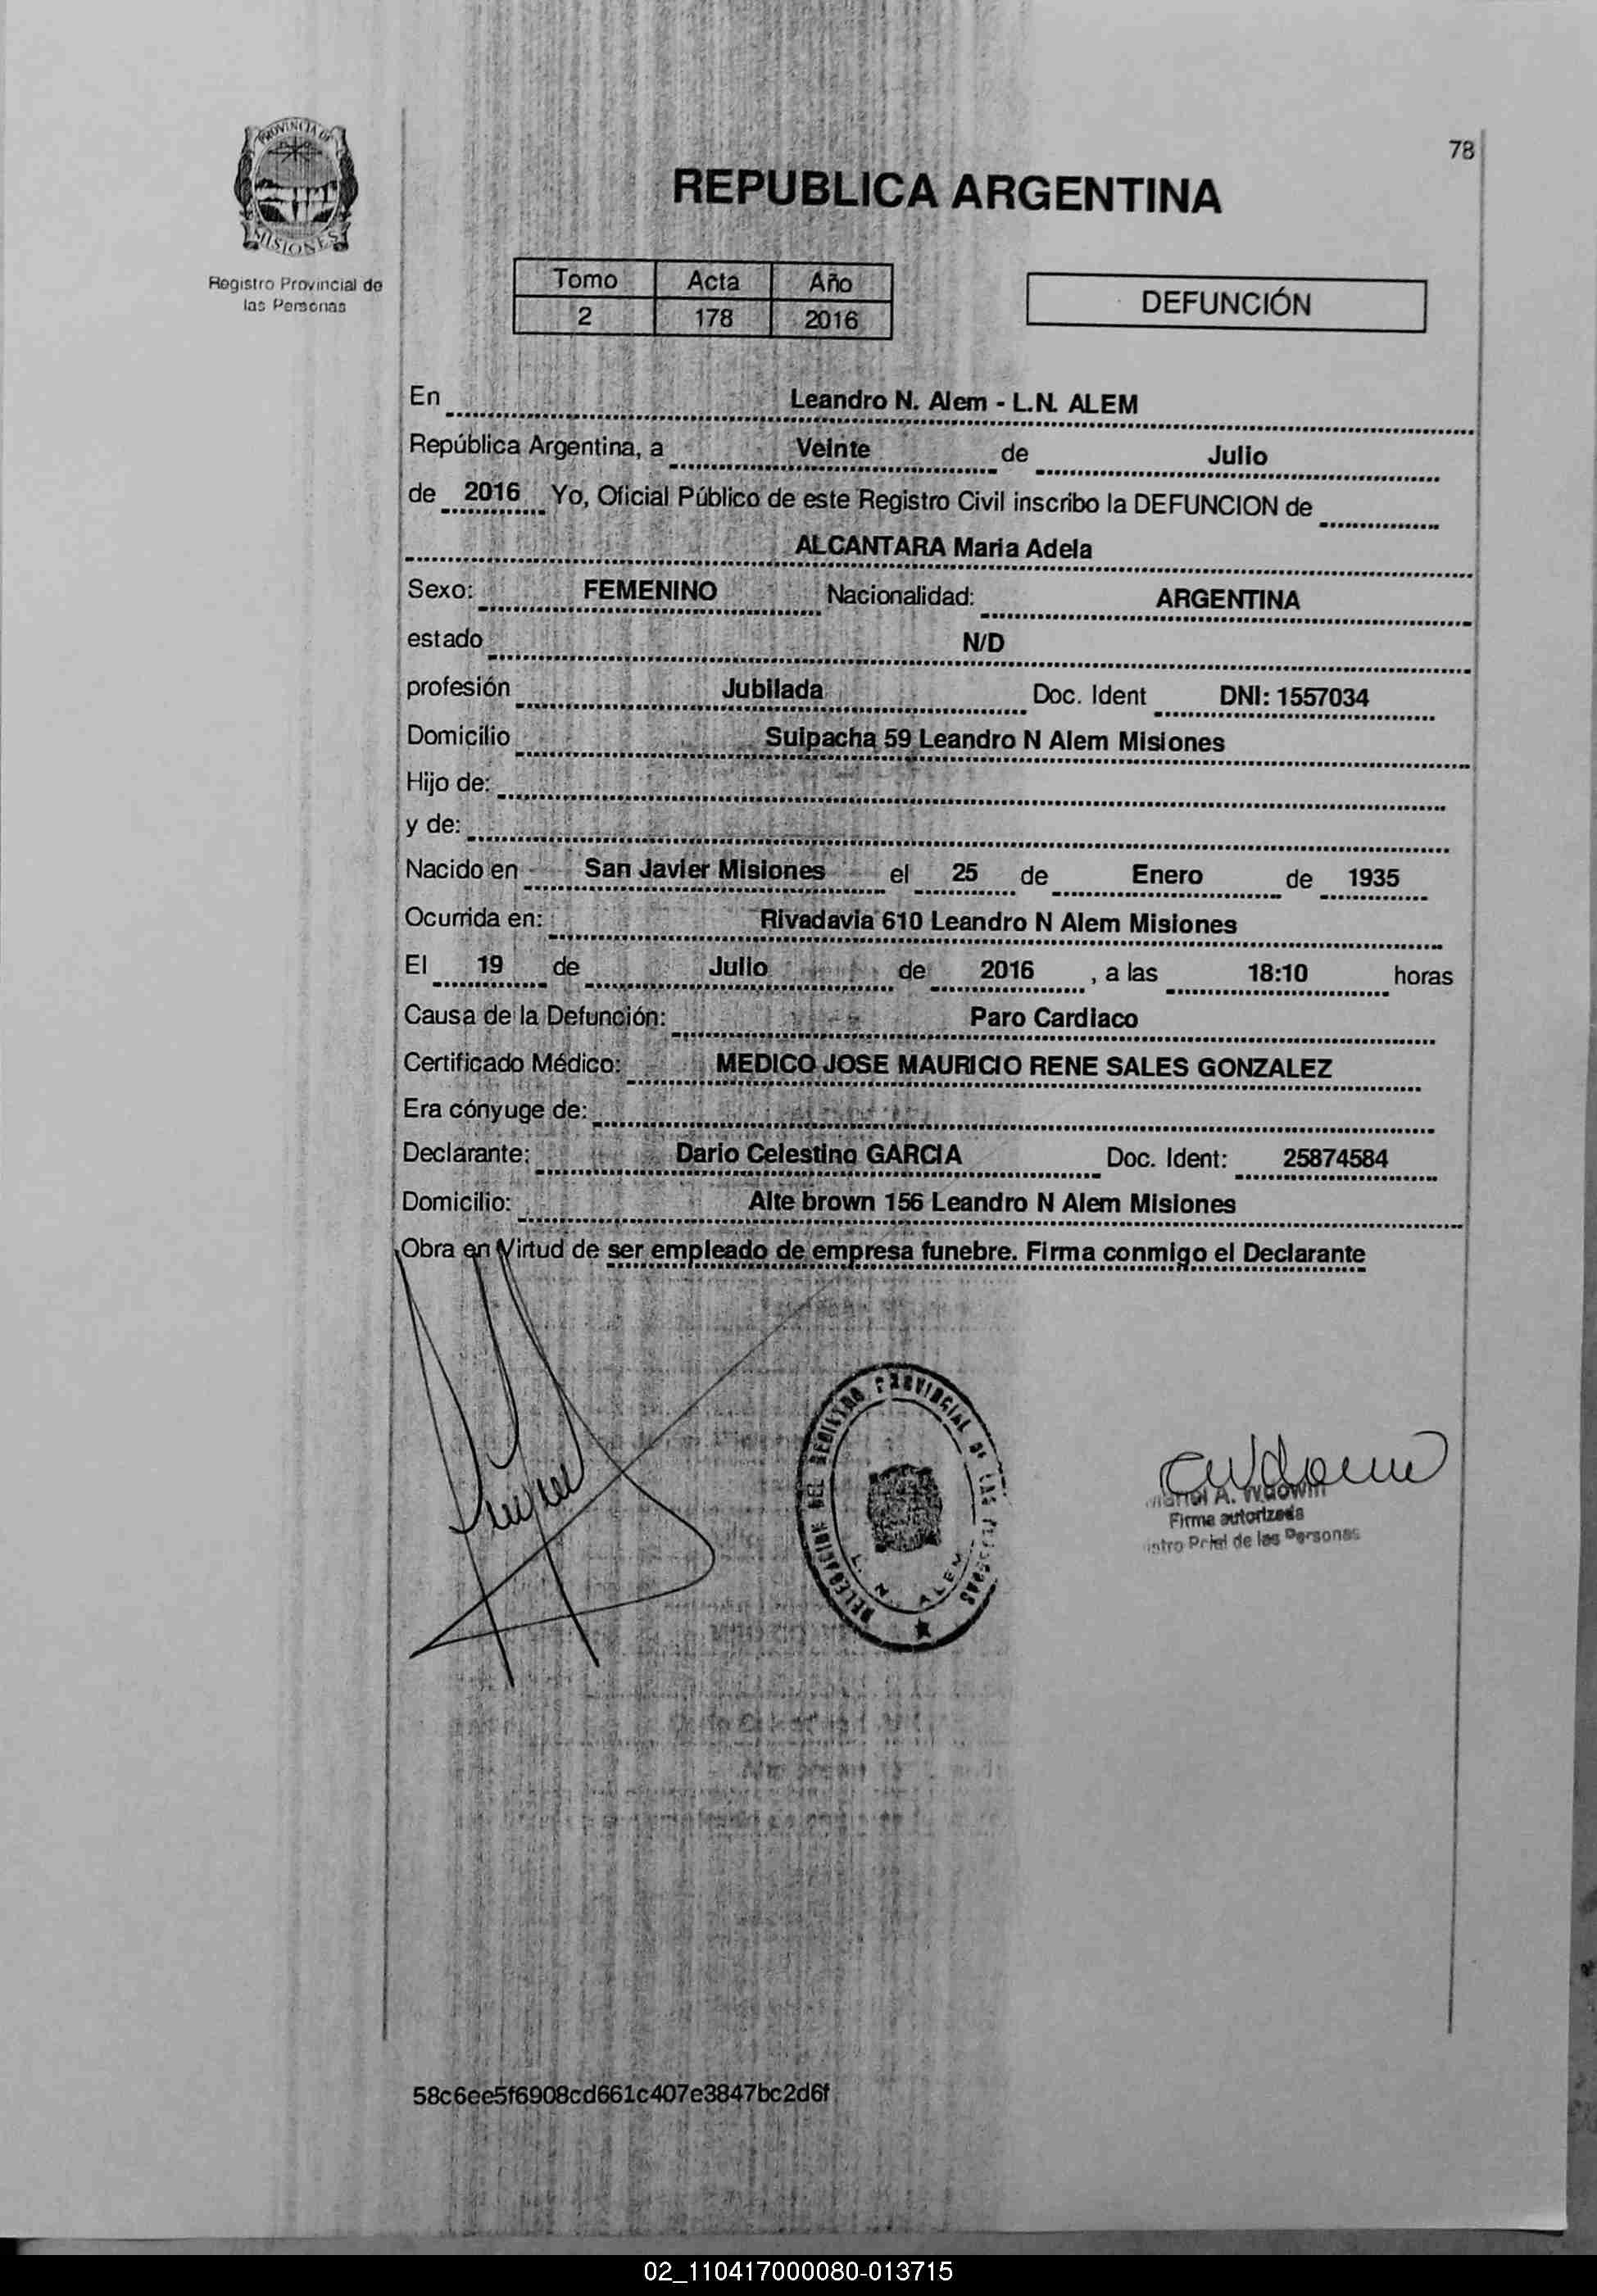 78
PROVINCIA DE
MISIONES
Registro Provincial de
las Personas
REPUBLICA ARGENTINA
Tomo Acta Año
2 178 2016
DEFUNCIÓN
En Leandro N. Alem - L.N. ALEM
República Argentina, a Veinte de Julio
de 2016 Yo, Oficial Público de este Registro Civil inscribo la DEFUNCION de
ALCANTARA Maria Adela
Sexo: FEMENINO Nacionalidad: ARGENTINA
estado N/D
profesión Jubilada Doc. Ident DNI: 1557034
Domicilio Suipacha 59 Leandro N Alem Misiones
Hijo de:
y de:
Nacido en San Javier Misiones el 25 de Enero de 1935
Ocurrida en: Rivadavia 610 Leandro N Alem Misiones
El 19 de Julio de 2016 , a las 18:10 horas
Causa de la Defunción: Paro Cardiaco
Certificado Médico: MEDICO JOSE MAURICIO RENE SALES GONZALEZ
Era cónyuge de:
Declarante: Dario Celestino GARCIA Doc. Ident: 25874584
Domicilio: Alte brown 156 Leandro N Alem Misiones
Obra en Virtud de ser empleado de empresa funebre. Firma conmigo el Declarante
DELEGACION DEL REGISTRO PROVINCIAL DE LAS PERSONAS
L. N. ALEM
A.
Firma autorizada
de las Personas
58c6ee5f6908cd661c407e3847bc2d6f
02_110417000080-013715